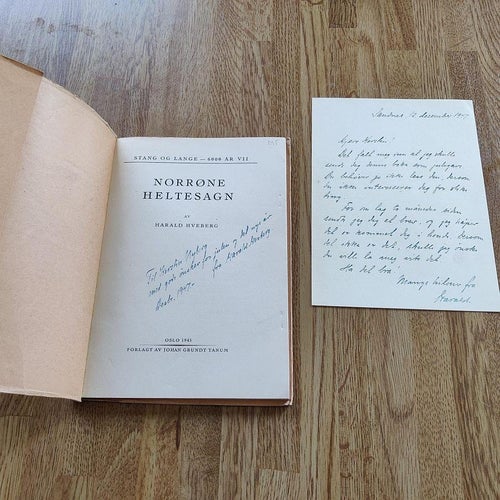 STANG OG LANGE — 6000 ÅR VII
NORRØNE
HELTESAGN
AV
HARALD HVEBERG
Til Kerstin Nyberg
med gode ønsker for julen og det nye år
Desbr. 1947. fra Harald Hveberg
OSLO 1943
FORLAGT AV JOHAN GRUNDT TANUM
12. december 1947
Kjære Kerstin!
Det falt meg inn at jeg skulle
sende deg denne boka som julegave.
Du behøver jo ikke lese den dersom
den ikke interesserer deg for
For om lag to måneder siden
sendte jeg deg et brev, og jeg håper
det er kommet deg i hende. Dersom
det ikke er det, skulle jeg ønske
du ville la meg vite det.
Ha det bra
Mange hilsener fra
Harald.